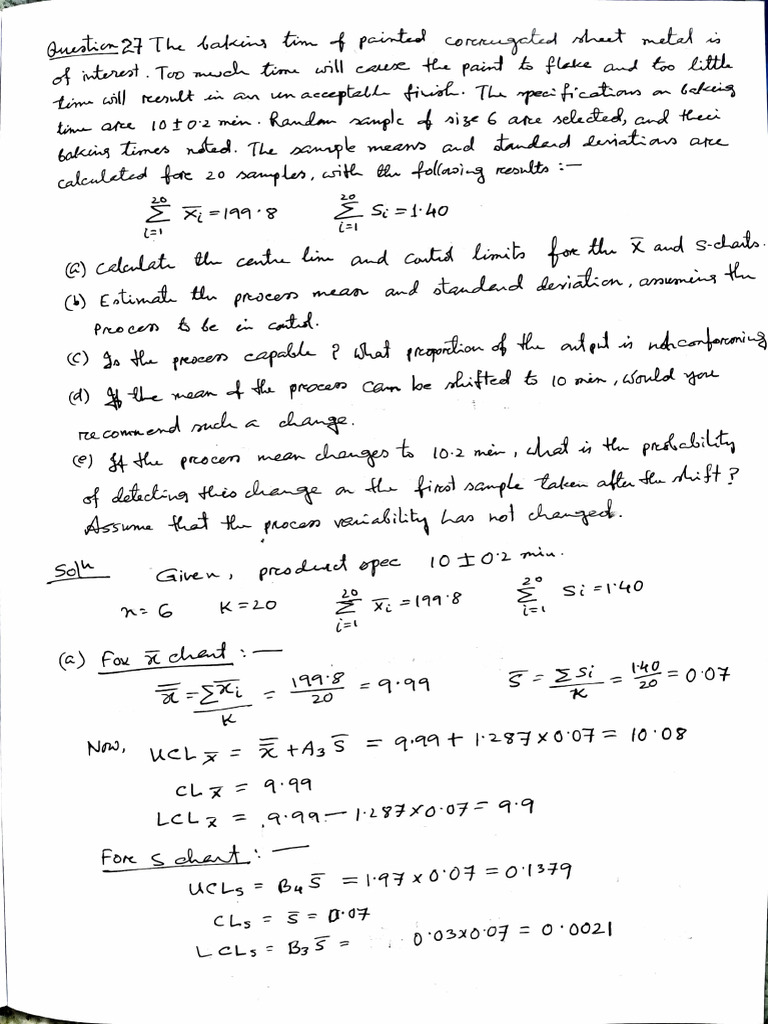 Question 27 The baking tim of painted corrugated sheet metal is
of interest. Too much time will cause the paint to flake and too little
time will result in an unacceptable finish. The specifications on baking
time are 10 ± 0.2 min. Random sample of size 6 are selected, and their
baking times noted. The sample means and standard deviations are
calculated fore 20 samples, with the following results :—
20 Σ i=1 x̄i = 199.8 20 Σ i=1 Si = 1.40
(a) Calculate the centre line and control limits for the x̄ and s-charts.
(b) Estimate the process mean and standard deviation, assuming the
process to be in control.
(c) Is the process capable? What proportion of the output is nonconforming
(d) If the mean of the process can be shifted to 10 min, would you
recommend such a change.
(e) If the process mean changes to 10.2 min, what is the probability
of detecting this change on the first sample taken after the shift?
Assume that the process variability has not changed.
Solⁿ Given, product spec 10 ± 0.2 min.
n = 6 K = 20 20 Σ i=1 x̄i = 199.8 20 Σ i=1 Si = 1.40
(a) For x̄ chart :—
x̿ = Σx̄i / K = 199.8 / 20 = 9.99 S̄ = ΣSi / K = 1.40 / 20 = 0.07
Now, UCL x̄ = x̿ + A₃ S̄ = 9.99 + 1.287 × 0.07 = 10.08
CL x̄ = 9.99
LCL x̄ = 9.99 — 1.287 × 0.07 = 9.9
Fore S chart :—
UCLs = B₄ S̄ = 1.97 × 0.07 = 0.1379
CLs = S̄ = 0.07
LCLs = B₃ S̄ = 0.03×0.07 = 0.0021